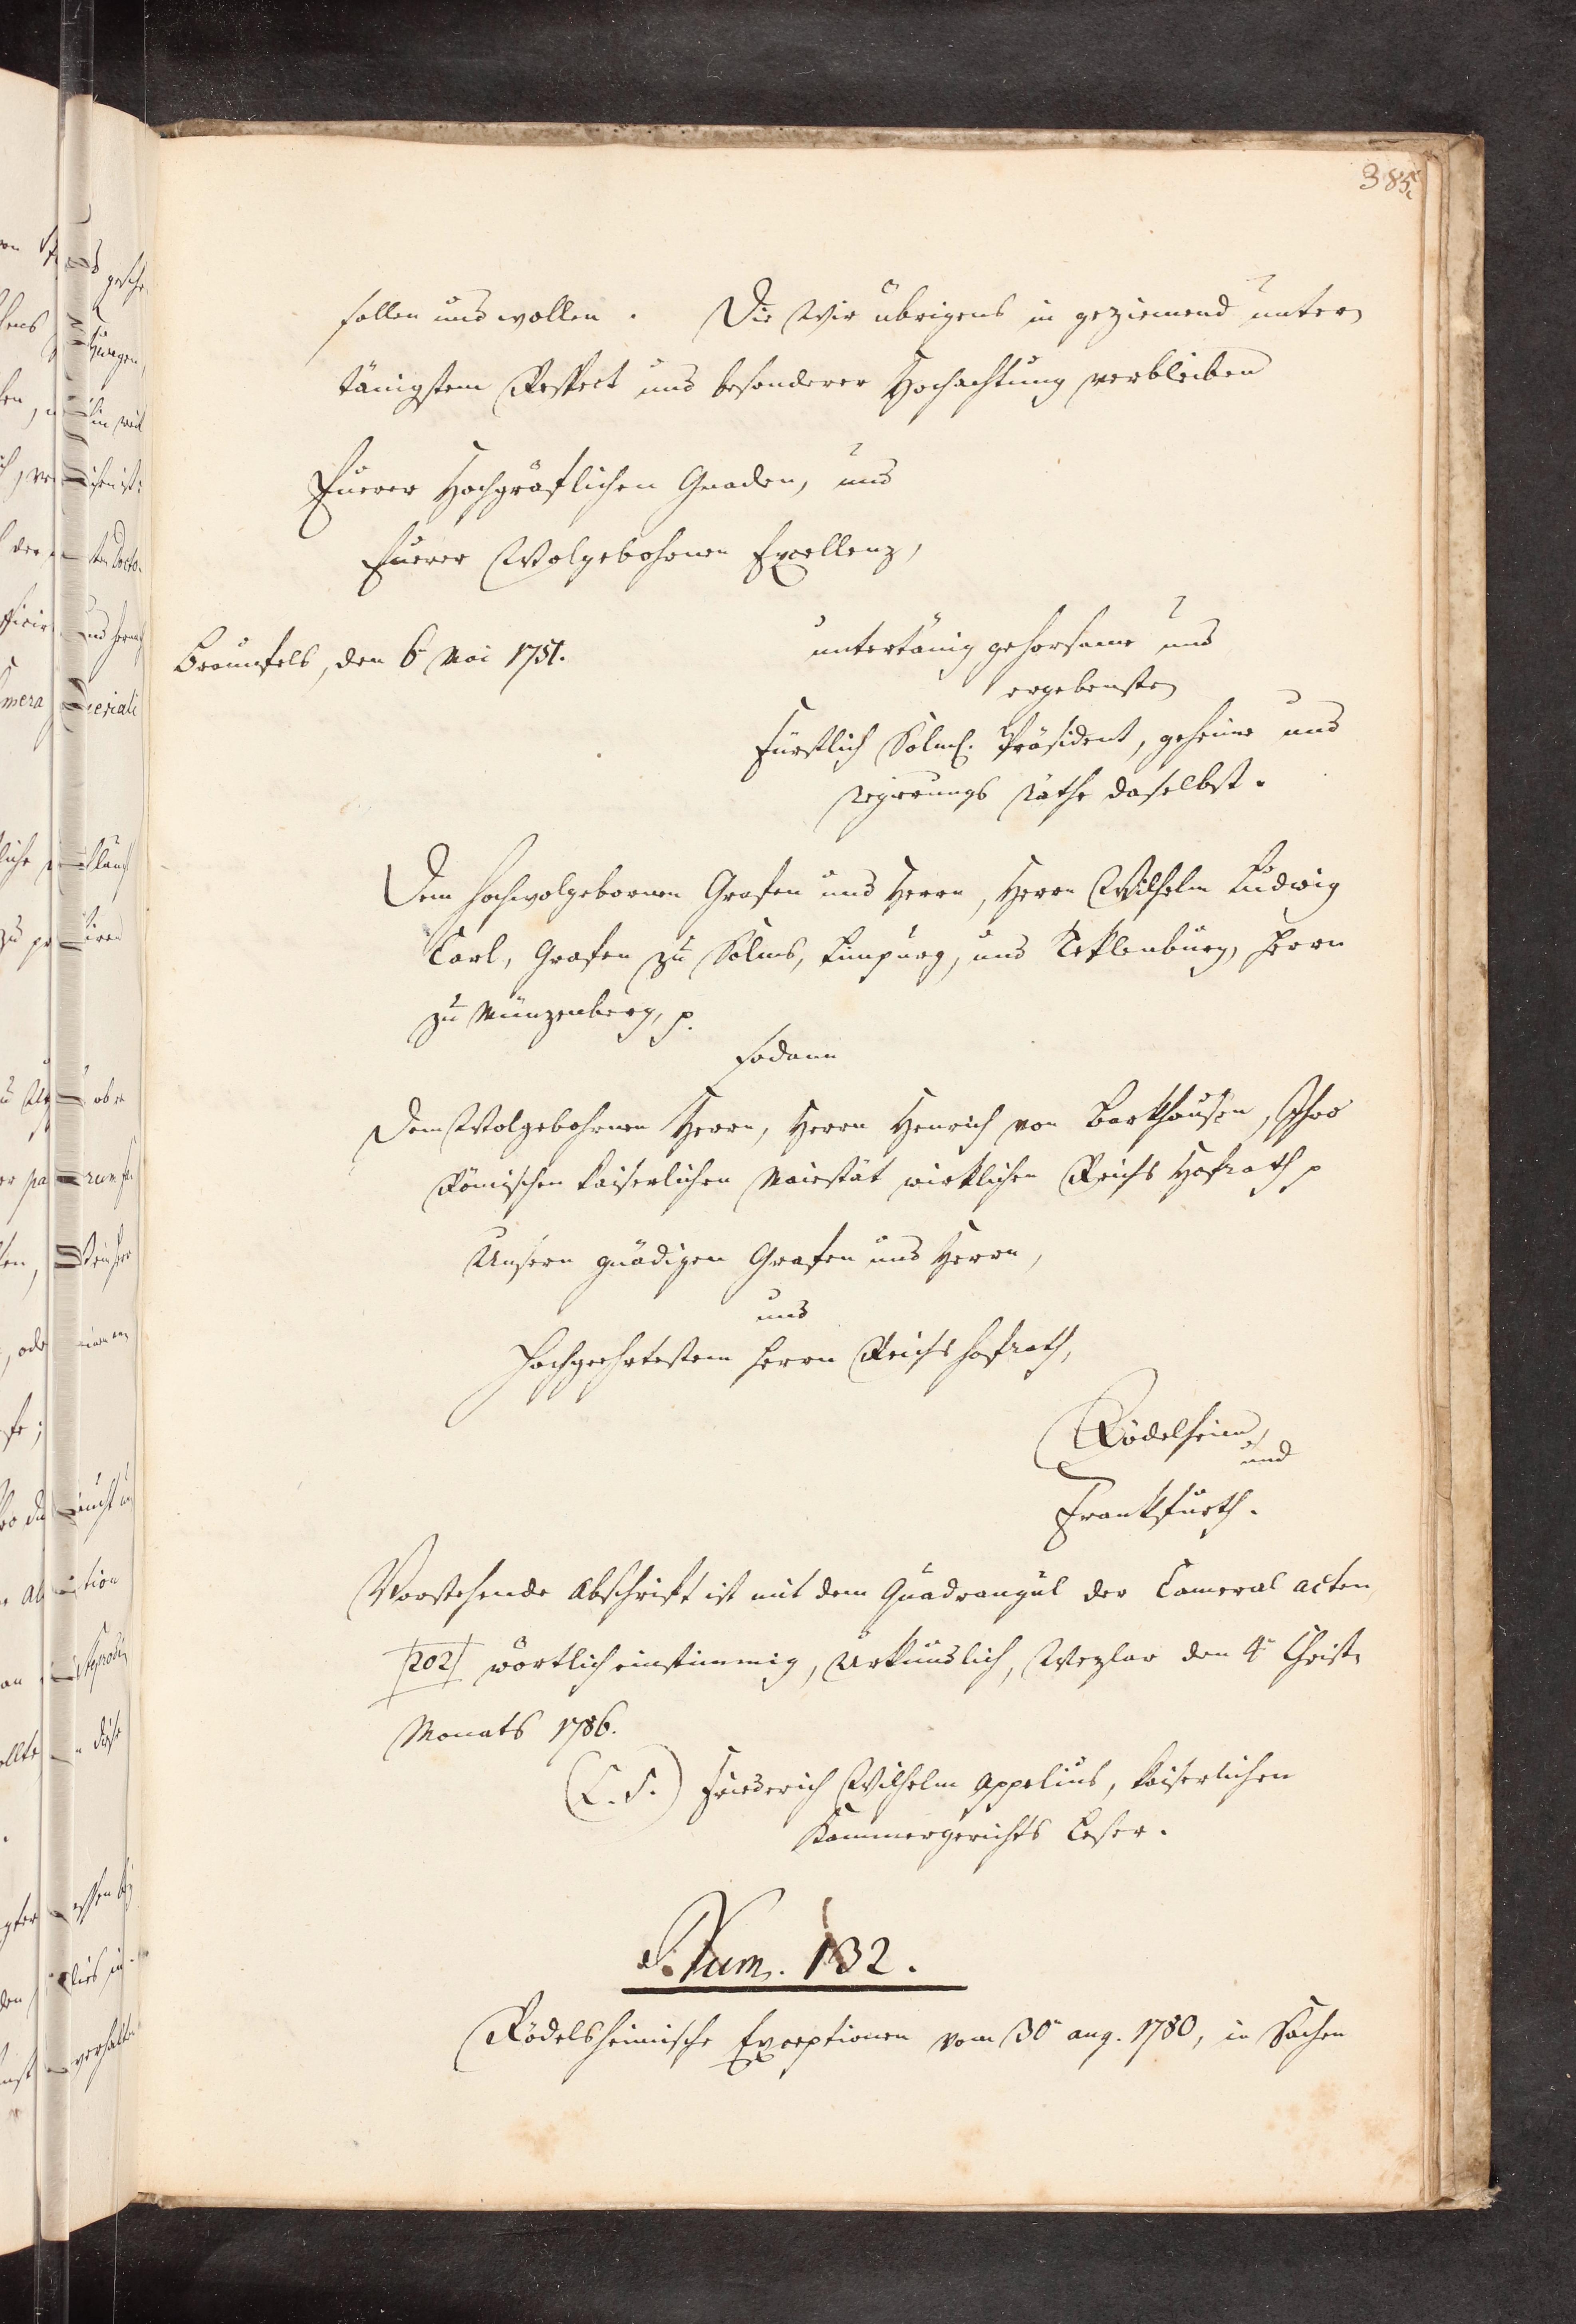 385.
sollen und wollen. Die Wir übrigens in geziemend unter-
tänigstem Respect und besonderer Hochachtung verbleiben
Euerer Hochgräflichen Gnaden, und
Euerer Wolgebohrnen Excellenz,
Braunfels, den 6ⁿ Mai 1751.
untertänig gehorsame und
ergebenste
Fürstlich Solms. Präsident, geheime und
Regierungs Räthe daselbst.
Dem Hochwolgebornen Grafen und Herrn, Herrn Wilhelm Ludwig
Carl, Grafen zu Solms, Limpurg, und Teklenburg, Herrn
zu Münzenberg, p.
sodann
Dem Wolgebohrnen Herrn, Herrn Henrich von Barkhausen, Ihro
Römischen kaiserlichen Maiestät wirklichen Reichs Hofrath p
Unsern gnädigen Grafen und Herrn,
und
Hochgeehrtestem Herrn Reichshofrath,
Rödelheim,
und
Frankfurth.
Vorstehende Abschrift ist mit dem Quadrangul der Cameral acten,
|202| wörtlich einstimmig, Urkundlich, Wezlar den 4ⁿ Christ-
Monats 1786.
(L.S.) Friederich Wilhelm Appelius, kaiserlichen
Kammergerichts Leser.
Num. 132.
Rödelsheimische Exceptionen vom 30ⁿ aug. 1780, in Sachen